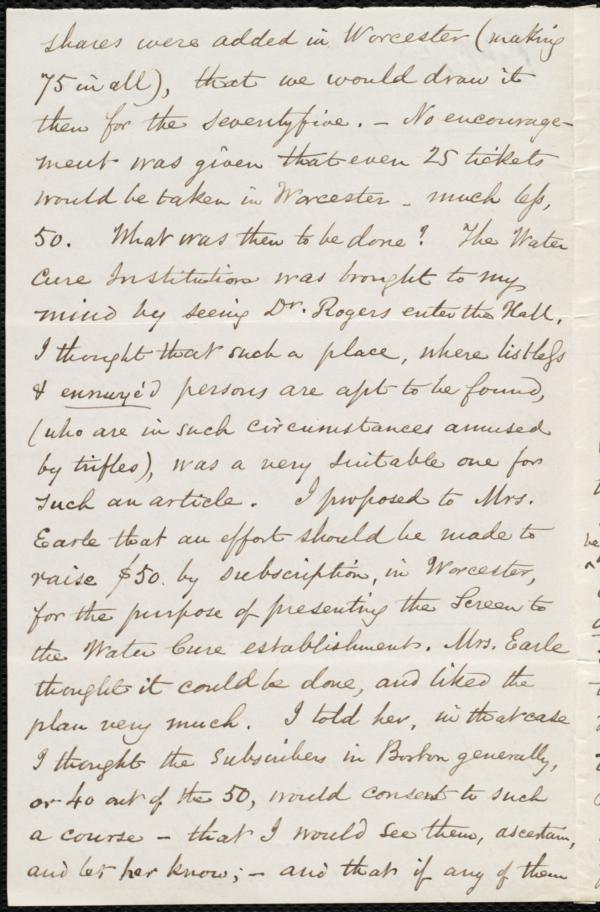 shares were added in Worcester (making
75 in all), that we would draw it
then for the seventyfive. – No encourage-
ment was given that even 25 tickets
would be taken in Worcester – much less,
50. What was then to be done? The Water
Cure Institution was brought to my
mind by seeing Dr. Rogers enter the Hall.
I thought that such a place, where listless
& ennuyé'd persons are apt to be found,
(who are in such circumstances amused
by trifles), was a very suitable one for
such an article. I proposed to Mrs.
Earle that an effort should be made to
raise $50. by subscription, in Worcester,
for the purpose of presenting the Screen to
the Water Cure establishment. Mrs. Earle
thought it could be done, and liked the
plan very much. I told her, in that case
I thought the Subscribers in Boston generally,
or 40 out of the 50, would consent to such
a course – that I would see them, ascertain,
and let her know; – and that if any of them